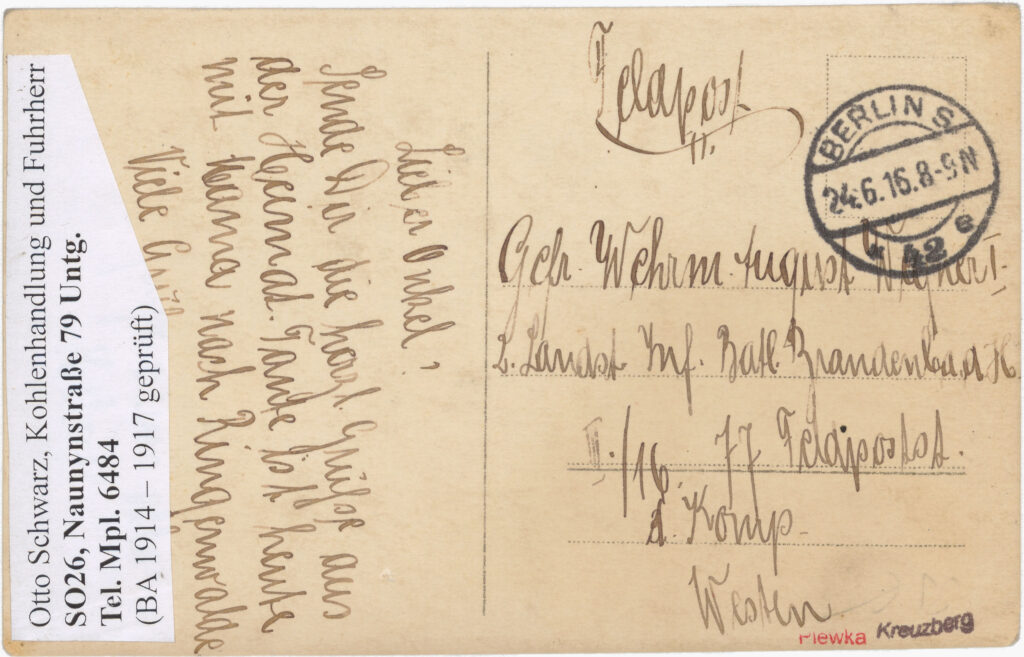 Otto Schwarz, Kohlenhandlung und Fuhrherr
SO26, Naunynstraße 79 Untg.
Tel. Mpl. 6484
(BA 1914 – 1917 geprüft)
Lieber Onkel,
Sende Dir die hzgl. Grüße aus
der Heimat. Tante ist heute
mit Mama nach Ringenwalde
Viele
Feldpost
BERLIN S
24.6.16.8-9N
* 42 e
Gefr. Wehrm. August
2. Landst. Inf. Batl. Brandenbu. a H.
II./16. 77 Feldpostst.
2. Komp.
Westen
Plewka Kreuzberg